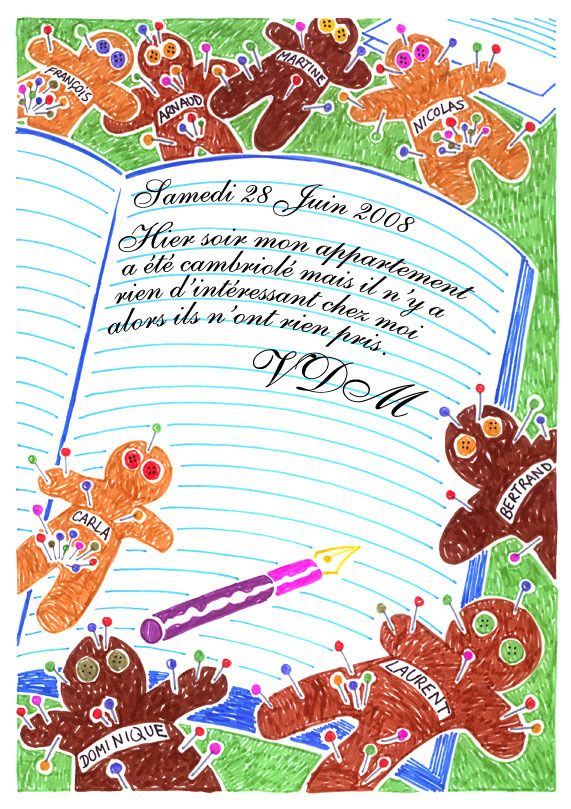 FRANÇOIS
ARNAUD
MARTINE
NICOLAS
Samedi 28 Juin 2008
Hier soir mon appartement
a été cambriolé mais il n'y a
rien d'intéressant chez moi
alors ils n'ont rien pris.
VDM
BERTRAND
CARLA
LAURENT
DOMINIQUE